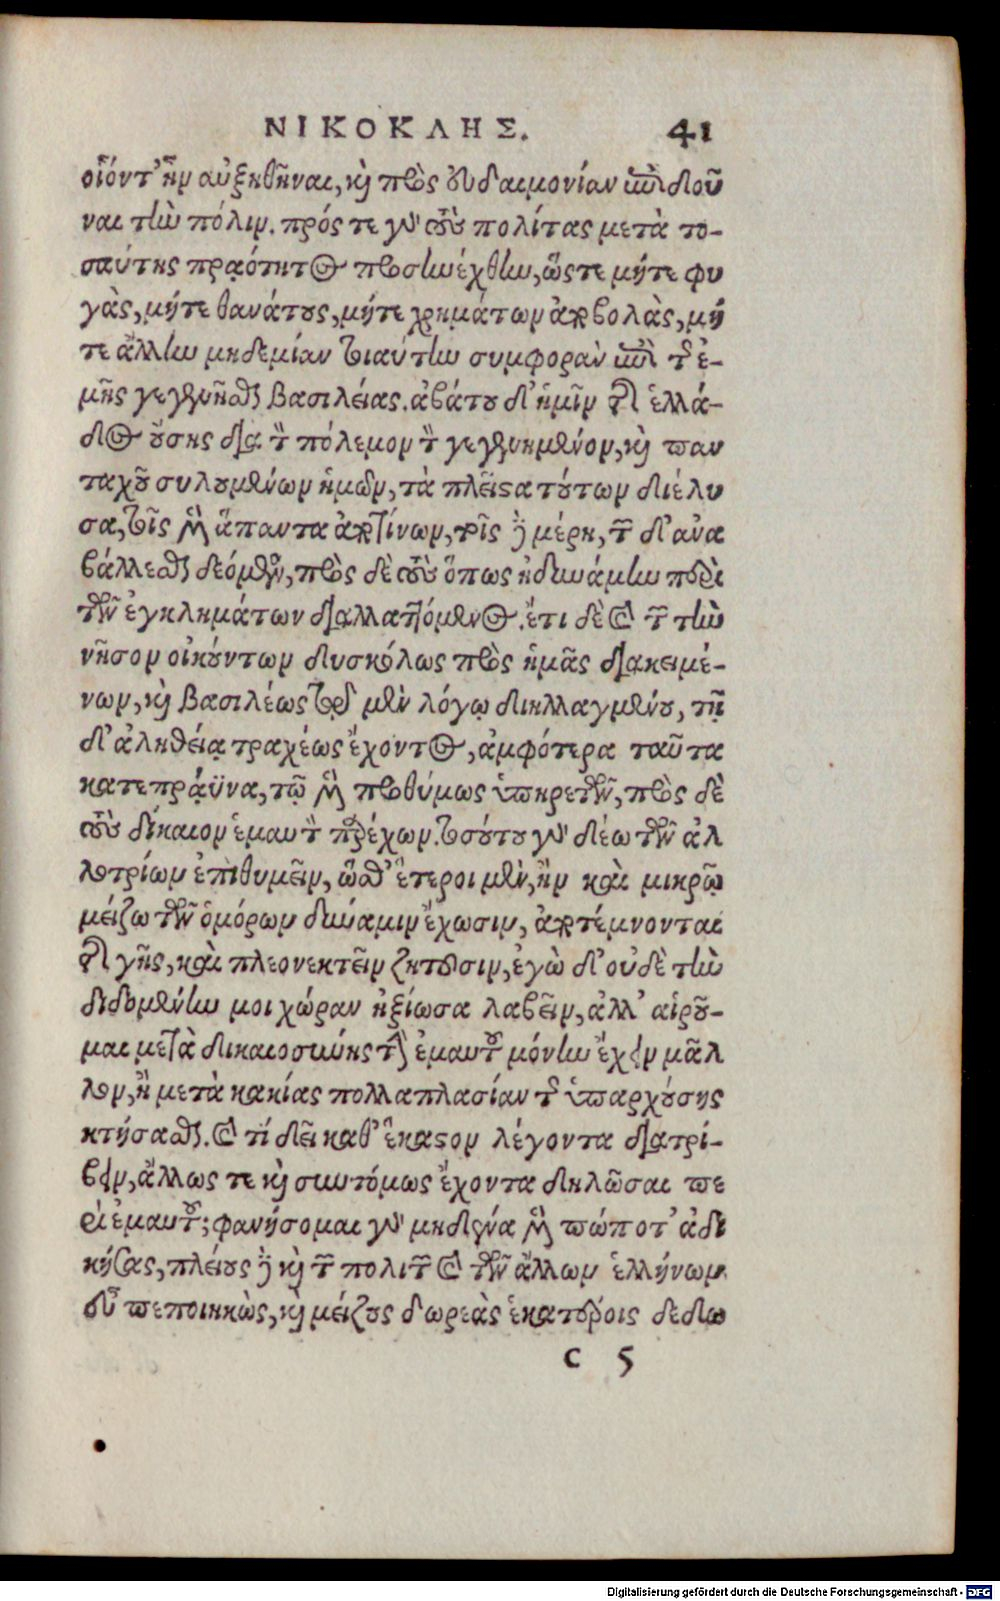 ΝΙΚΟΚΛΗΣ. 41
οἷόντ' ἦν αὐξηθῆναι, καὶ πρὸς εὐδαιμονίαν ἐπιδοῦ
ναι τὴν πόλιν. πρός τε γὰρ τοὺς πολίτας μετὰ το-
σαύτης πραότητος προσηνέχθην, ὥστε μήτε φυ
γὰς, μήτε θανάτους, μήτε χρημάτων ἀποβολὰς, μή
τε ἄλλην μηδεμίαν τοιαύτην συμφορὰν ἐπὶ τῆς ἐ-
μῆς γεγενῆσθαι βασιλείας. ἀβάτου δ' ἡμῖν τῆς ἑλλά-
δος οὔσης διὰ τὸν πόλεμον τὸν γεγενημένον, καὶ παν
ταχοῦ συλουμένων ἡμῶν, τὰ πλεῖστα τούτων διέλυ
σα, τοῖς μὲν ἅπαντα ἀποτίνων, τοῖς δὲ μέρη, τῶν δ' ἀνα
βάλλεσθαι δεόμενος, πρὸς δὲ τοὺς ὅπως ἠδυνάμην περὶ
τῶν ἐγκλημάτων διαλλαττόμενος. ἔτι δὲ καὶ τῶν τὴν
νῆσον οἰκούντων δυσκόλως πρὸς ἡμᾶς διακειμέ-
νων, καὶ βασιλέως τῷ μὲν λόγῳ διηλλαγμένου, τῇ
δ' ἀληθείᾳ τραχέως ἔχοντος, ἀμφότερα ταῦτα
κατεπράϋνα, τῷ μὲν προθύμως ὑπηρετεῖν, πρὸς δὲ
τοὺς δίκαιον ἐμαυτὸν παρέχων. τοσούτου γὰρ δέω τῶν ἀλ
λοτρίων ἐπιθυμεῖν, ὥσθ' ἕτεροι μὲν, ἢν καὶ μικρῷ
μείζω τῶν ὁμόρων δύναμιν ἔχωσιν, ἀποτέμνονται
τῆς γῆς, καὶ πλεονεκτεῖν ζητοῦσιν, ἐγὼ δ' οὐδὲ τὴν
διδομένην μοι χώραν ἠξίωσα λαβεῖν, ἀλλ' αἱροῦ-
μαι μετὰ δικαιοσύνης τὴν ἐμαυτοῦ μόνην ἔχειν μᾶλ
λον, ἢ μετὰ κακίας πολλαπλασίαν τῆς ὑπαρχούσης
κτήσασθαι. καὶ τί δεῖ καθ' ἕκαστον λέγοντα διατρί-
βειν, ἄλλως τε καὶ συντόμως ἔχοντα δηλῶσαι πε
ρὶ ἐμαυτοῦ; φανήσομαι γὰρ μηδένα μὲν πώποτ' ἀδι
κήσας, πλείους δὲ καὶ τῶν πολιτῶν καὶ τῶν ἄλλων ἑλλήνων
εὖ πεποιηκὼς, καὶ μείζους δωρεὰς ἑκατέροις δεδω
C 5
Digitalisierung gefördert durch die Deutsche Forschungsgemeinschaft - DFG